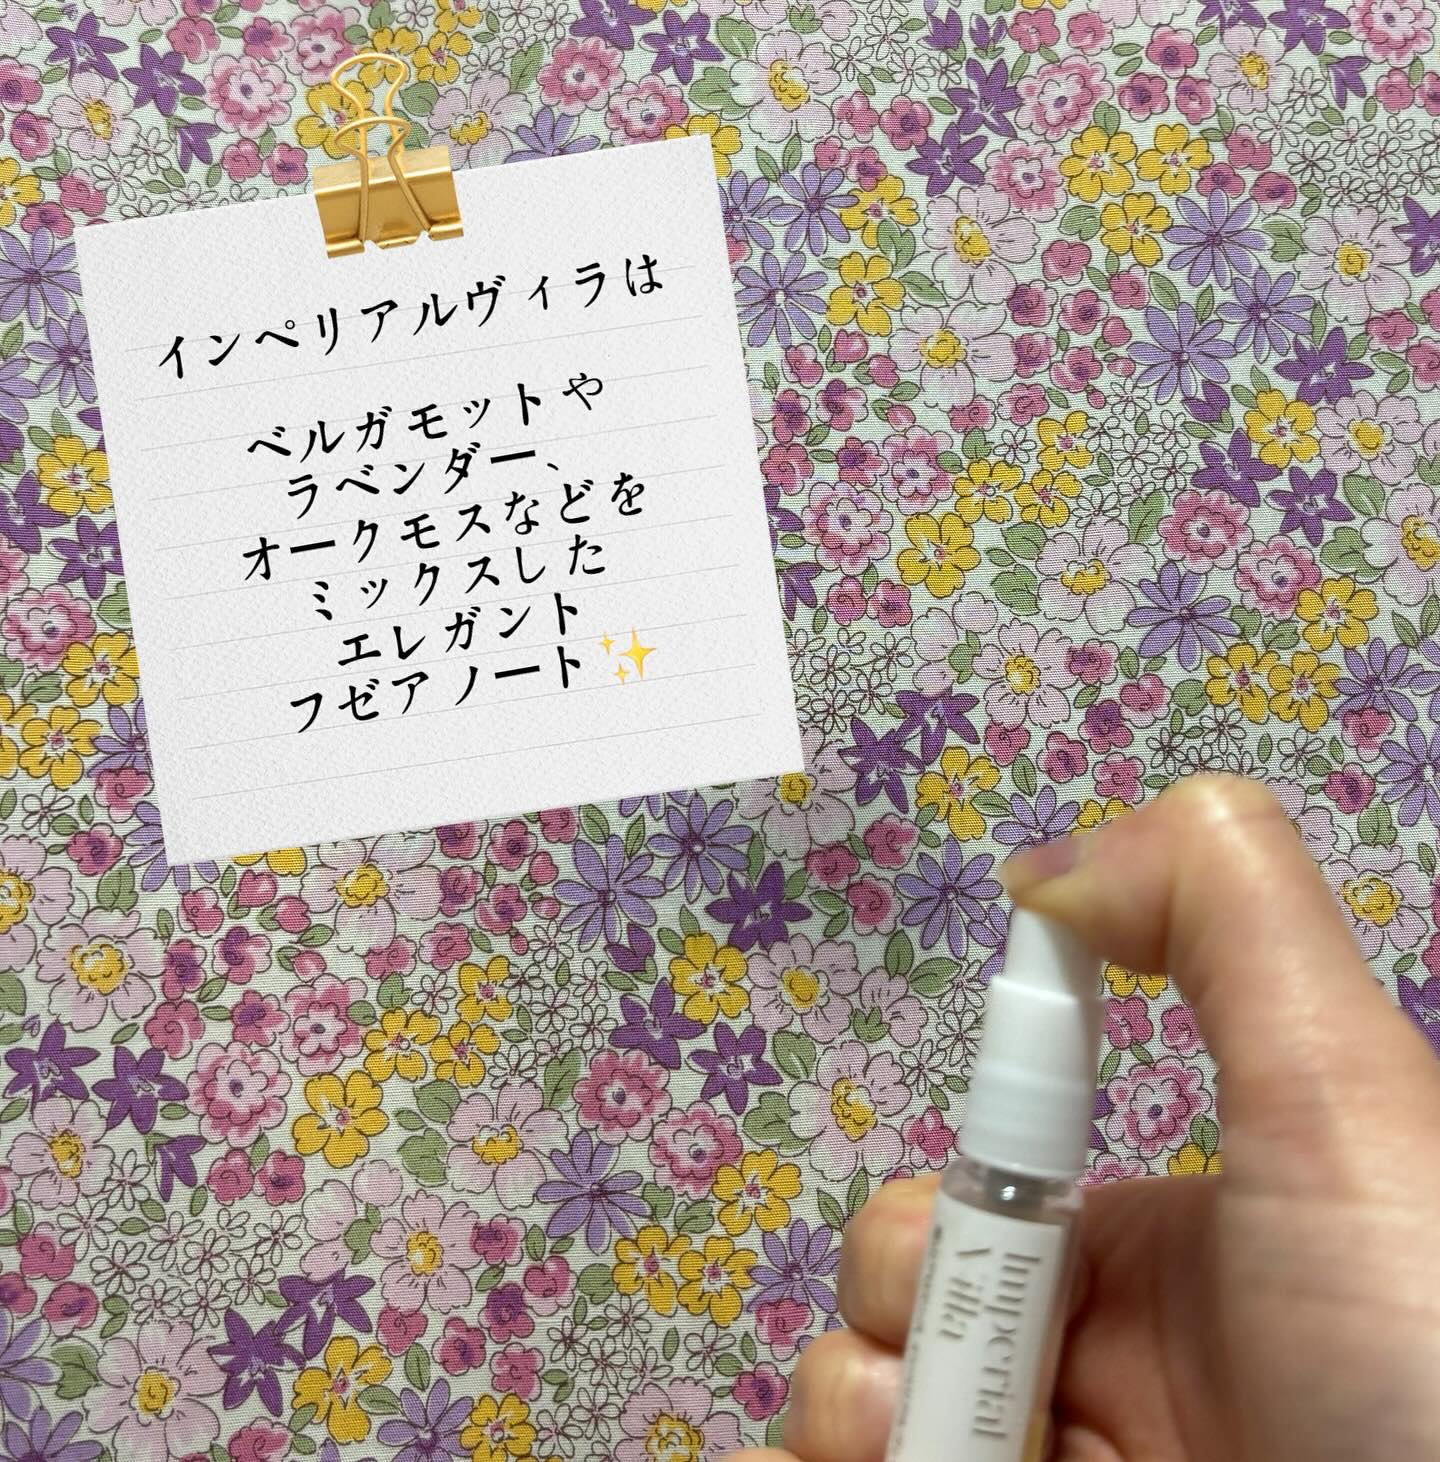 インペリアルヴィラは
ベルガモットや
ラベンダー、
オークモスなどを
ミックスした
エレガント
フゼアノート✨
Imperial
Villa